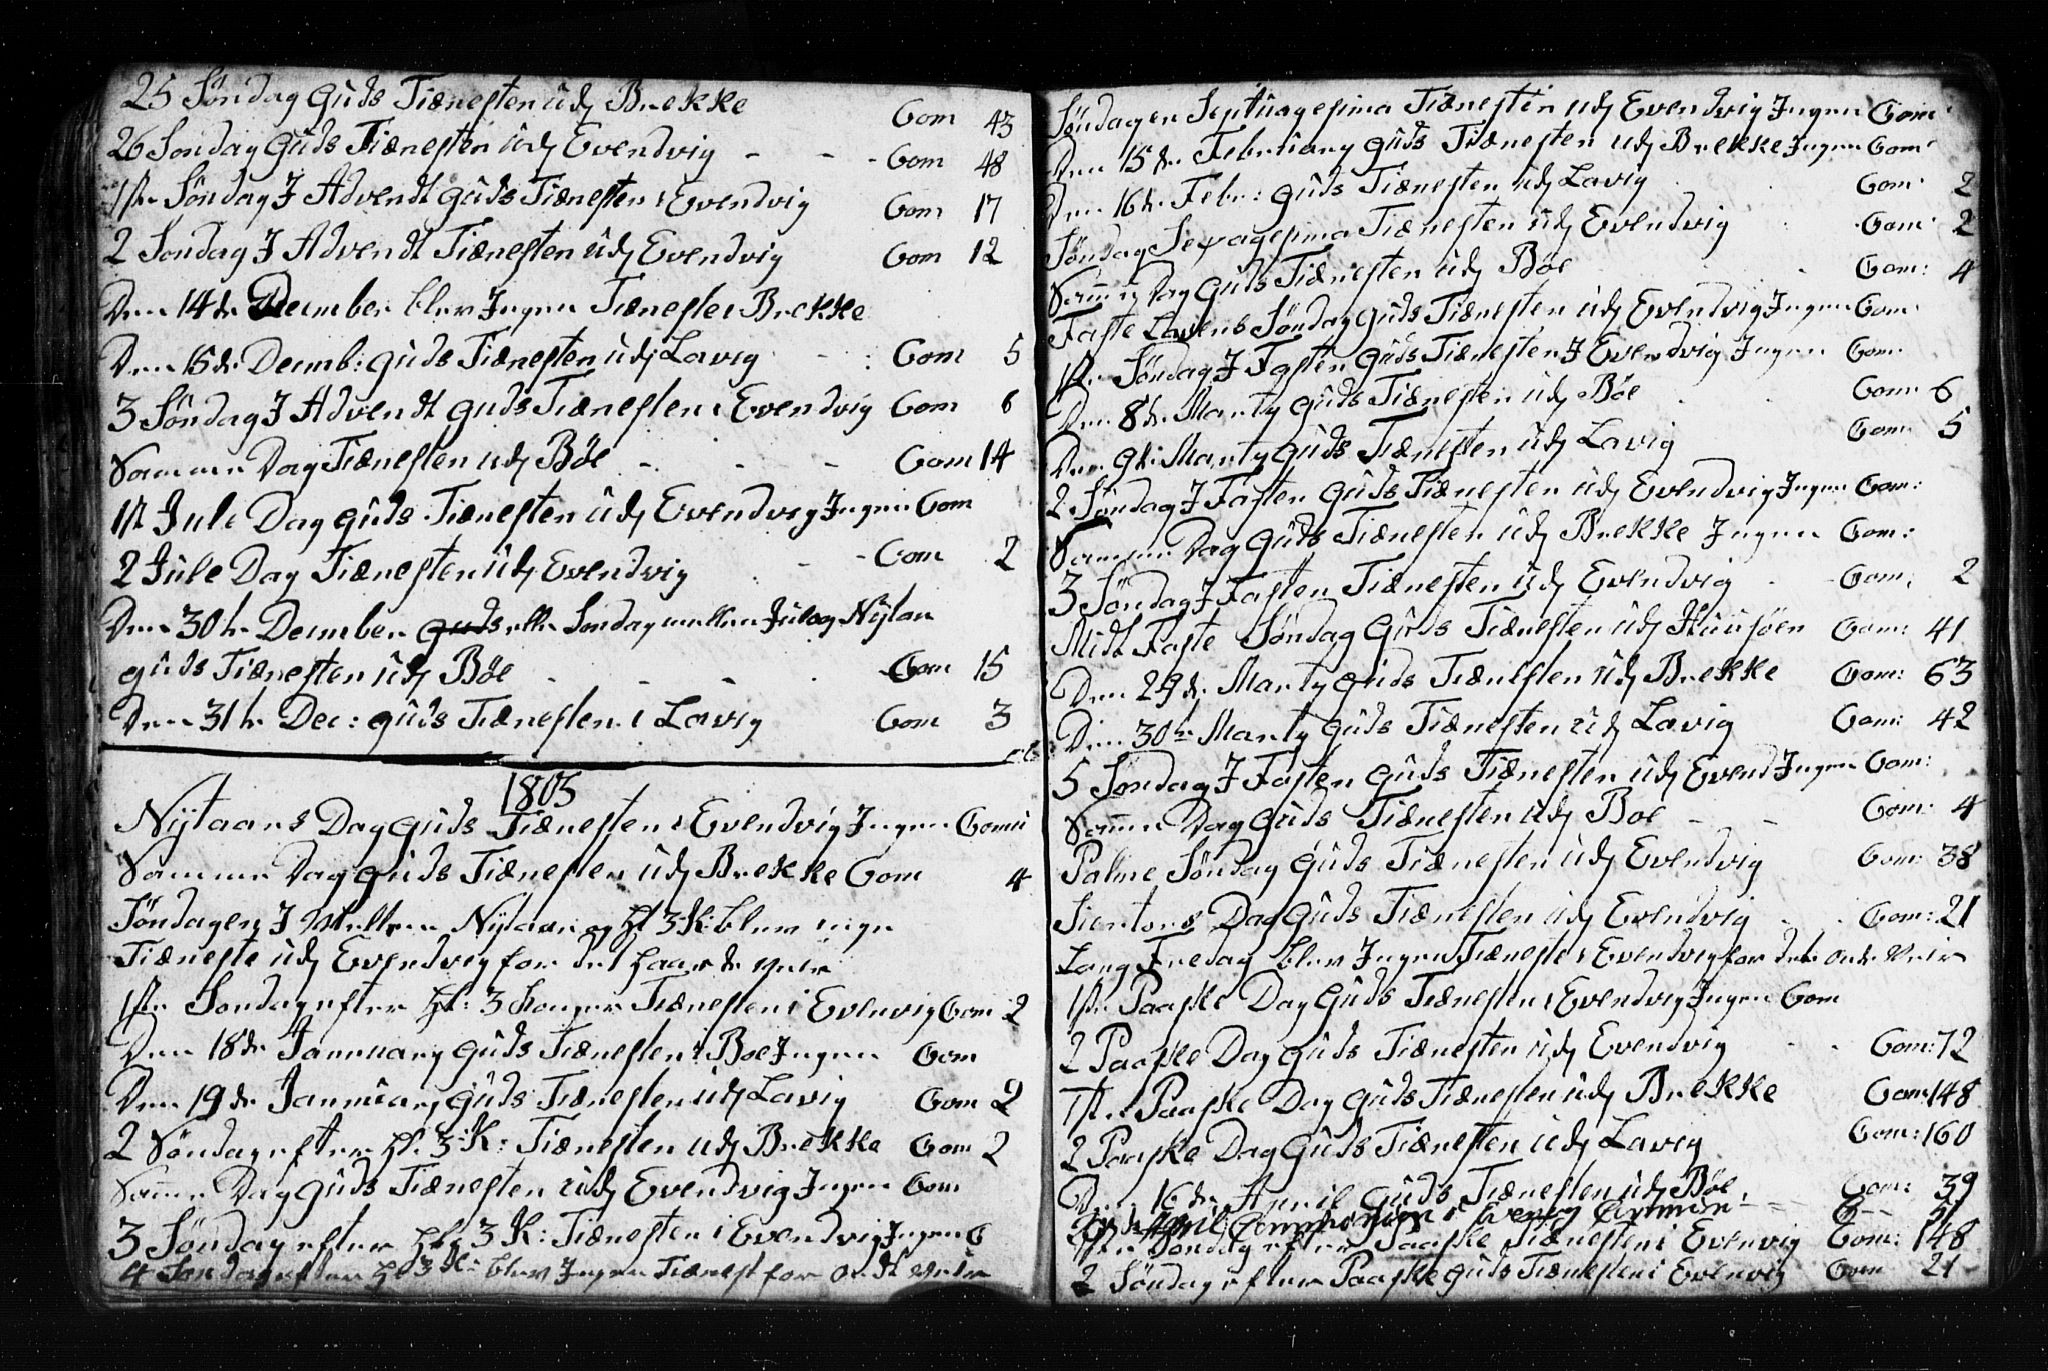 25 Søndag Guds Tiænesten udj Brekke Com 43
26 Søndag Guds Tiænesten udj Evendvig - - - Com 48
1ste Søndag J Advendt Guds Tiænesten i Evendvig Com 17
2 Søndag J Advendt Tiænesten udj Evendvig Com 12
Den 14de December blev Ingen Tiæneste i Brekke
Den 15de Decemb: Guds Tiænesten udj Lavig - : Com 5
3 Søndag J Advendt Guds Tiænesten i Evendvig Com 6
Samme Dag Tiænesten udj Böe - - - Com 14
1ste Jule Dag Guds Tiænesten udj Evendvig Ingen Com
2 Jule Dag Tiænesten udj Evendvig - - Com 2
Den 30te December Guds eller Søndag mellem Jul og Nytaar
Guds Tiænesten udj Böe - - - . Com 15
Den 31te Dec: Guds Tiænesten i Lavig Com 3
1803
Nytaars Dag Guds Tiænesten i Evendvig Ingen Comu
Samme Dag Guds Tiænesten udj Brekke Com 4
Søndagen J Mellem Nytaar og Hl 3 K: blev inge
Tiæneste udj Evendvig for det haarde Veir
1ste Søndag efter Hl: 3 Konger Tiænesten i Evenvig Com 2
Den 18de Januuary Guds Tiænesten i Boe Ingen Com
Den 19de Januuary Guds Tiænesten udj Lavig Com 2
2 Søndag efter Hl. 3 K: Tiænesten udj Brekke Com 2
Samme Dag Guds Tiænesten udj Evendvig Ingen Com
3 Søndag efter Hl: 3 K: Tiænesten i Evendvig Ingen C
4 Søndag efter Hl 3 K: blev Ingen Tiænest for ondt Veir
Søndagen Septuagesima Tiænesten udj Evendvig Ingen Com
Den 15de February Guds Tiænesten udj Brekke Ingen Com
Den 16de Febr: Guds Tiænesten udj Lavig Com 2
Søndag Sexagesima Tiænesten udj Evendvig Com 2
Samme Dag Guds Tiænesten udj Böe Com: 4
Faste Lavens Søndag Guds Tiænesten udj Evendvig Ingen Com
1ste Søndag J Fasten Guds Tiænesten J Evendvig Ingen Com
Den 8de Marty Guds Tiænesten udj Böe Com: 6
Den 9de Marty Guds Tiænesten udj Lavig Com: 5
2 Søndag J Fasten Guds Tiænesten udj Evendvig Ingen Com:
Samme Dag Guds Tiænesten udj Brekke Ingen Com:
3 Søndag J Fasten Tiænesten udj Evendvig - Com: 2
Midt Faste Søndag Guds Tiænesten udj Huusøen Com: 41
Den 29de Marty Guds Tiænesten udj Brekke Com: 63
Den 30te Marty Guds Tiænesten udj Lavig Com: 42
5 Søndag J Fasten Guds Tiænesten udj Evend Ingen Com:
Samme Dag Guds Tiænesten udj Boe - - Com: 4
Palme Søndag Guds Tiænesten udj Evendvig Com: 38
Siertors Dag Guds Tiænesten udj Evendvig - . Com: 21
Lang Fredag blev Ingen Tiæneste i Evendvig for det onde Veir
1ste Paaske Dag Guds Tiænesten i Evendvig Ingen Com
2 Paaske Dag Guds Tiænesten udj Evendvig - - Com: 72
1ste Paaske Dag Guds Tiænesten udj Brekke Com 148
2 Paaske Dag Guds Tiænesten udj Lavig Com: 160
Den 16de April Guds Tiænesten udj Böe. Com: 39
April
1ste Søndag efter Paaske Tiænesten i Evenvig Com: 148
2 Søndag efter Paaske Guds Tiænesten i Evenvig Com 21